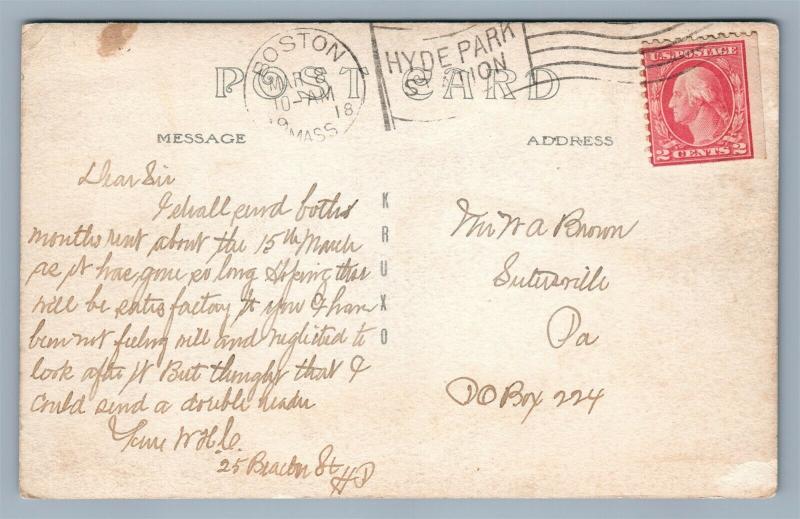 BOSTON
MAR 8
10-AM
19 18
MASS.
HYDE PARK
STATION
U.S. POSTAGE
2 CENTS 2
POST CARD
MESSAGE
ADDRESS
KRUXO
Dear Sir
I shall send both
months rent about the 15th March
as it has gone so long Hoping that
will be satisfactory to you I have
been not feeling well and neglected to
look after it But thought that I
could send a double
Yours W H C.
25 Beacon St HP
Mr W A Brown
Sutersville
Pa
PO Box 224